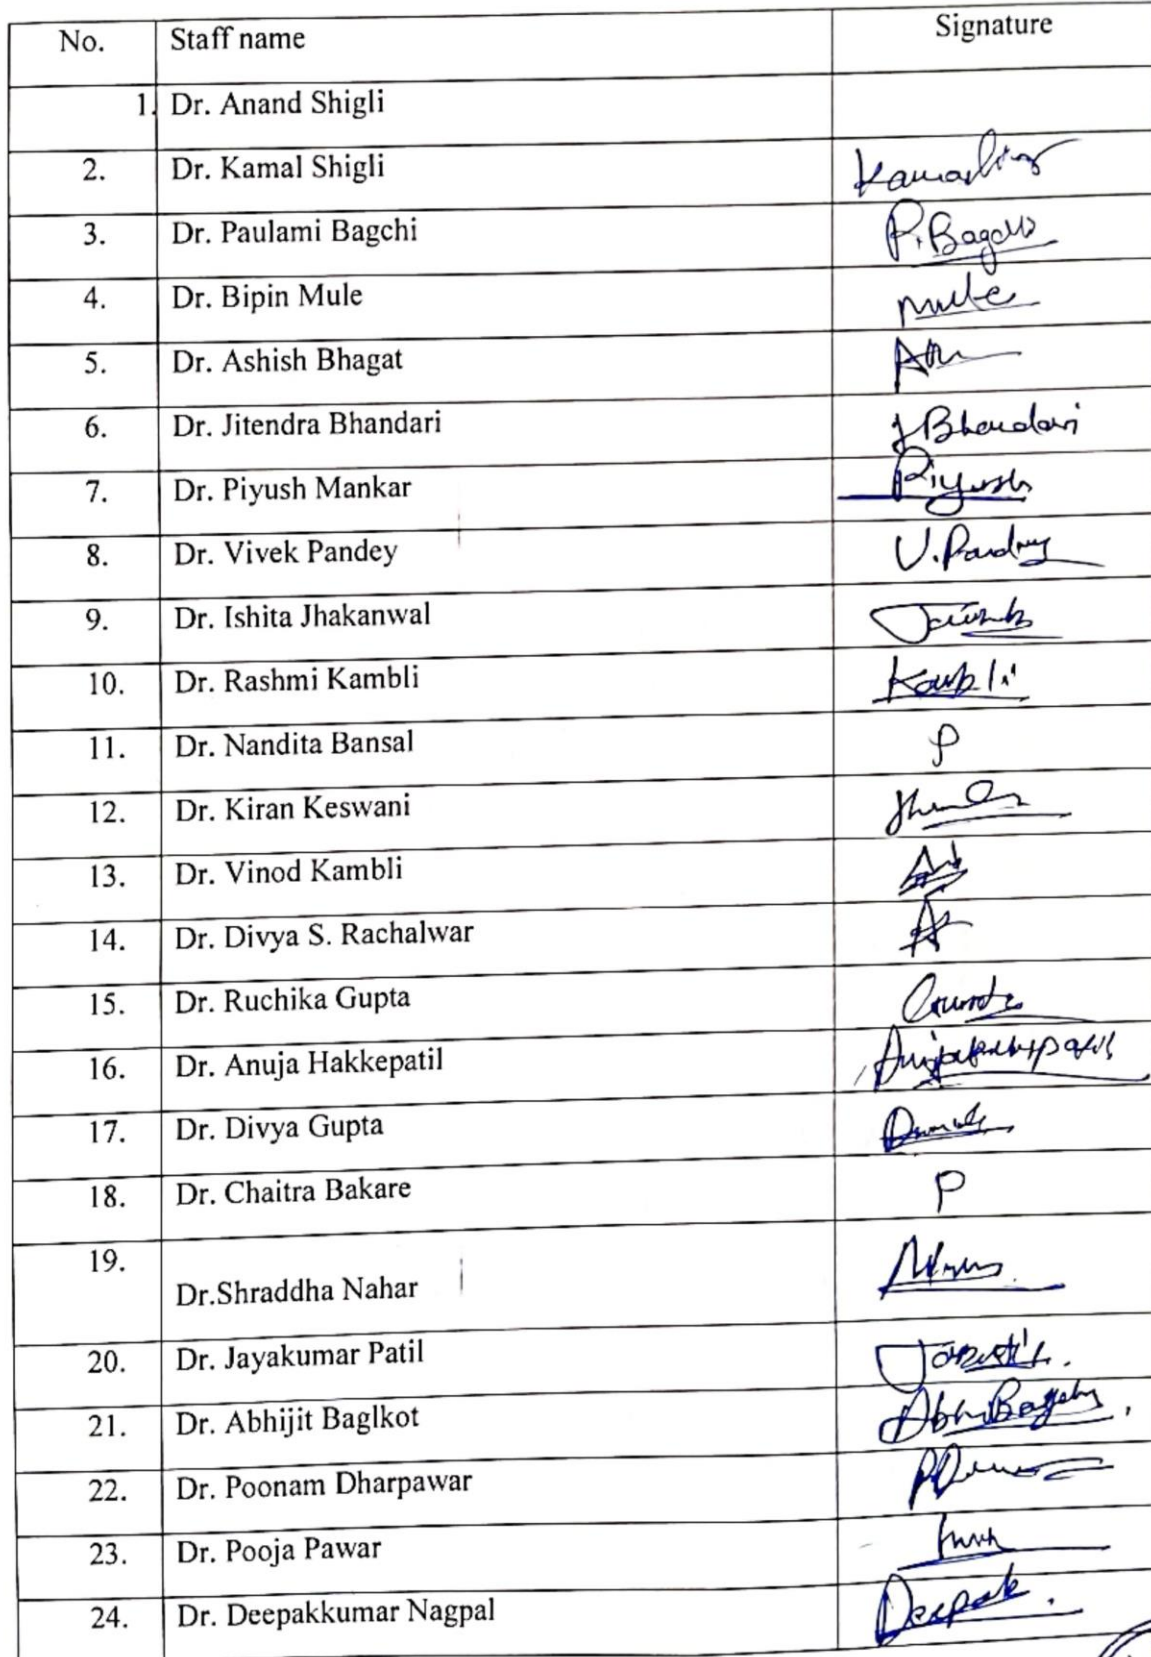 No. Staff name Signature
1. Dr. Anand Shigli
2. Dr. Kamal Shigli
3. Dr. Paulami Bagchi P. Bagchi
4. Dr. Bipin Mule Mule
5. Dr. Ashish Bhagat
6. Dr. Jitendra Bhandari J Bhandari
7. Dr. Piyush Mankar Piyush
8. Dr. Vivek Pandey V. Pandey
9. Dr. Ishita Jhakanwal
10. Dr. Rashmi Kambli Kambli
11. Dr. Nandita Bansal P
12. Dr. Kiran Keswani
13. Dr. Vinod Kambli
14. Dr. Divya S. Rachalwar
15. Dr. Ruchika Gupta
16. Dr. Anuja Hakkepatil
17. Dr. Divya Gupta
18. Dr. Chaitra Bakare P
19. Dr.Shraddha Nahar
20. Dr. Jayakumar Patil
21. Dr. Abhijit Baglkot
22. Dr. Poonam Dharpawar
23. Dr. Pooja Pawar
24. Dr. Deepakkumar Nagpal Deepak.